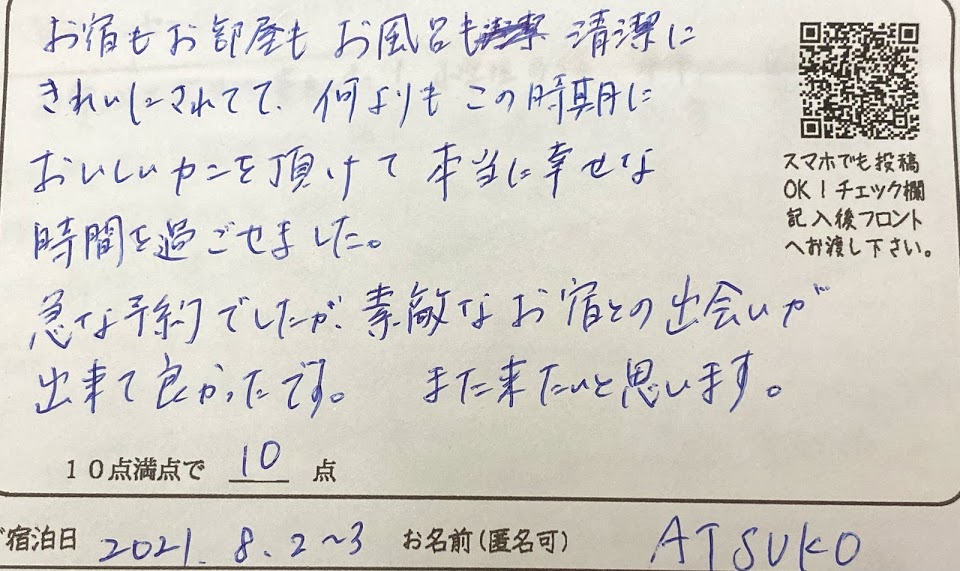 お宿もお部屋も お風呂も 清潔に
きれいにされてて、何よりも この時期に
おいしいカニを頂けて 本当に幸せな
時間を過ごせました。
急な予約でしたが、素敵なお宿との出会いが
出来て良かったです。 また来たいと思います。
スマホでも投稿
OK！チェック欄
記入後フロント
へお渡し下さい。
１０点満点で 10 点
宿泊日 2021. 8. 2~3 お名前（匿名可） ATSUKO